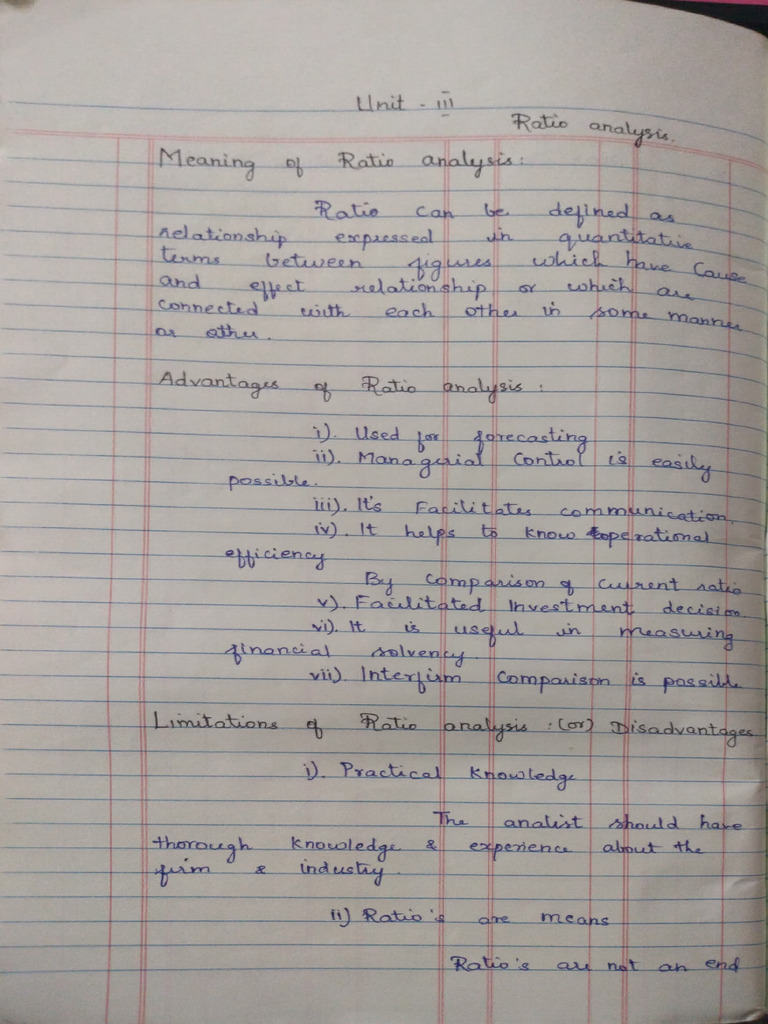 Unit - III
Ratio analysis.
Meaning of Ratio analysis:
Ratio can be defined as
relationship expressed in quantitative
terms between figures which have Cause
and effect relationship or which are
connected with each other in some manner
or other.
Advantages of Ratio analysis:
i). Used for forecasting
ii). Managerial Control is easily
possible.
iii). It's Facilitates communication.
iv). It helps to know operational
efficiency
By comparison of current ratio
v). Facilitated Investment decision
vi). It is useful in measuring
financial solvency
vii). Interfirm Comparison is possible
Limitations of Ratio analysis: (or) Disadvantages
i). Practical Knowledge
The analist should have
thorough knowledge & experience about the
firm & industry.
ii) Ratio's are means
Ratio's are not an end